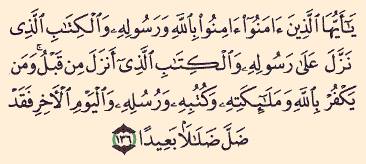 يَـٰٓأَيُّهَا ٱلَّذِينَ ءَامَنُوٓا۟ ءَامِنُوا۟ بِٱللَّهِ وَرَسُولِهِۦ وَٱلْكِتَـٰبِ ٱلَّذِى
نَزَّلَ عَلَىٰ رَسُولِهِۦ وَٱلْكِتَـٰبِ ٱلَّذِىٓ أَنزَلَ مِن قَبْلُ ۚ وَمَن
يَكْفُرْ بِٱللَّهِ وَمَلَـٰٓئِكَتِهِۦ وَكُتُبِهِۦ وَرُسُلِهِۦ وَٱلْيَوْمِ ٱلْـَٔاخِرِ فَقَدْ
ضَلَّ ضَلَـٰلًۢا بَعِيدًا ١٣٦